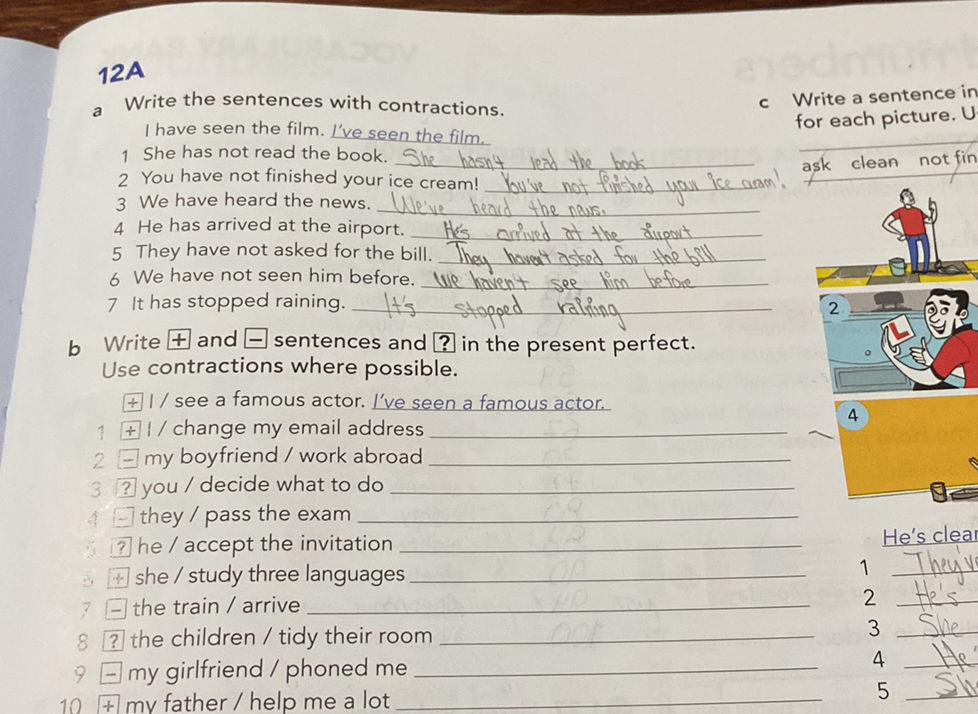 12A
a Write the sentences with contractions.
I have seen the film. I've seen the film.
1 She has not read the book. She hasn't read the book
2 You have not finished your ice cream! You've not finished your Ice cream!
3 We have heard the news. We've heard the news.
4 He has arrived at the airport. He's arrived at the airport
5 They have not asked for the bill. They haven't asked for the bill
6 We have not seen him before. We haven't see him before
7 It has stopped raining. It's stopped raining
b Write + and − sentences and ? in the present perfect.
Use contractions where possible.
+ I / see a famous actor. I've seen a famous actor.
1 + I / change my email address
2 − my boyfriend / work abroad
3 ? you / decide what to do
4 − they / pass the exam
5 ? he / accept the invitation
6 + she / study three languages
7 − the train / arrive
8 ? the children / tidy their room
9 − my girlfriend / phoned me
10 + my father / help me a lot
c Write a sentence in
for each picture. U
ask clean not fin
2
L
4
He's clea
1 They'v
2 He's
3 She
4 He'
5 Sh